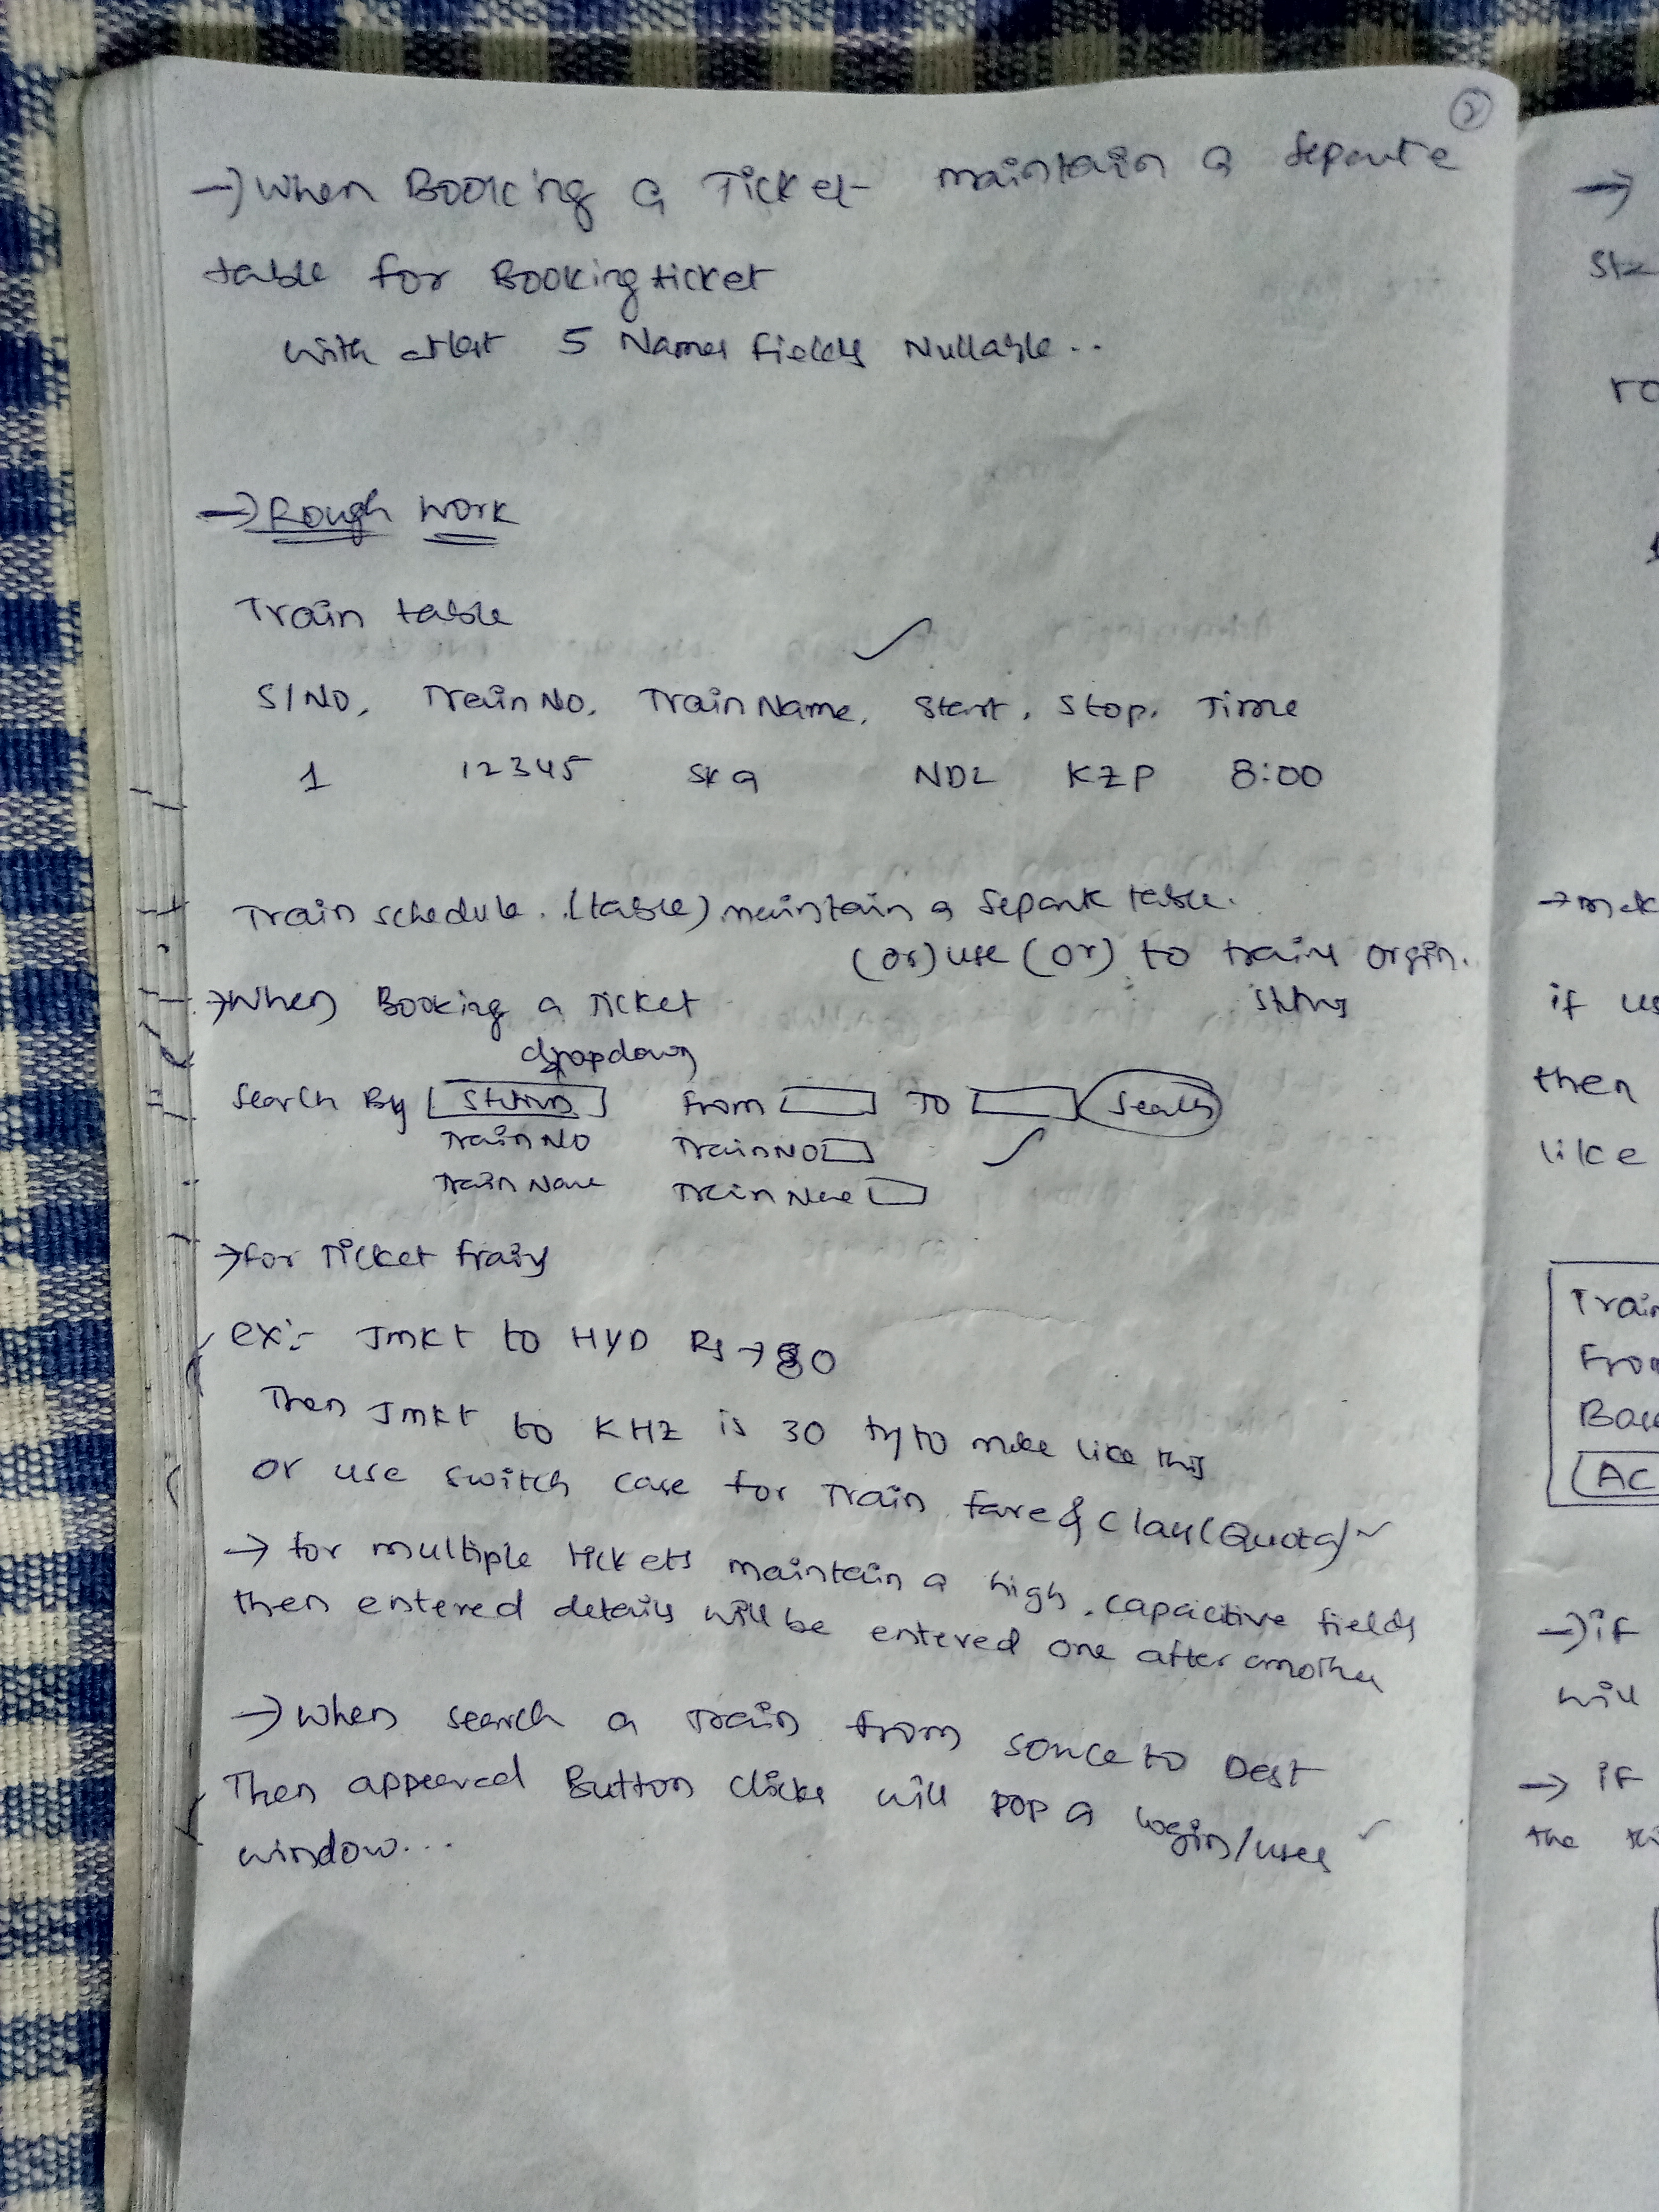 2
→ When Booking a Ticket maintain a Seperate
table for Booking ticket
with atlest 5 Names fields Nullable..
→ Rough Work
Train table
S/NO, Train No, Train Name, Start, Stop, Time
1 12345 Ska NDL KZP 8:00
Train schedule. (table) maintain a Separate table.
(or) use (or) to trains Orgin.
→ When Booking a Ticket
dropdown
Search By Station From To Search
Train NO Train NO
Train Name Train Name
→ for Ticket
ex:- Jmkt to HYD Rs → 80
Then Jmkt to KHZ is 30 try to make like this
or use switch case for Train fare & Class (Quota)
→ for multiple tickets maintain a high capacitive fields
then entered details will be entered one after another
→ When search a Train from Source to Dest
Then appeared Button clicks will pop a login/user
window...
→
Sta
ro
→ mak
if us
then
like
Train
From
Bas
AC
→ if
will
→ if
the